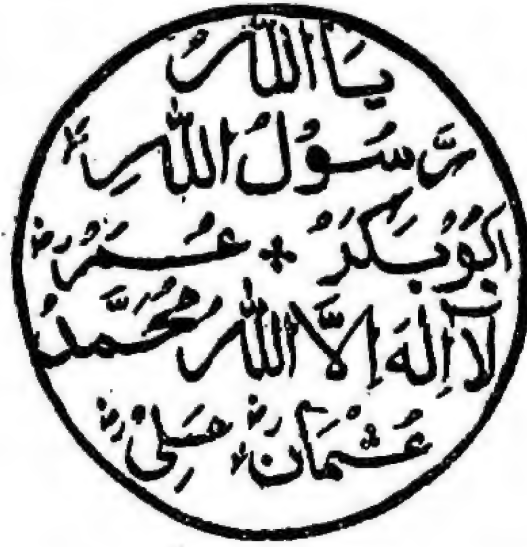 يَا اللهُ
رَّسُوْلُ اللهِ ؐ
ابُوْبَكَرْ + عُمَرْ ؓ
لَآ اِلٰهَ اِلَّا اللهُ مُحَمَّدُ
عُثْمَانْ ؓ عَلِیْ ؓ